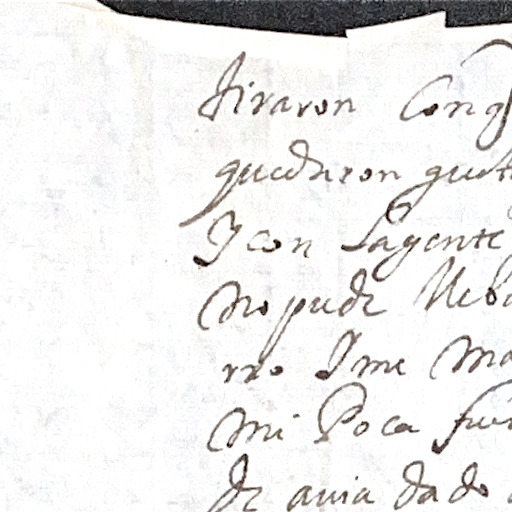 tiraron Con
quedaron
Y con Lagente
no pude lleba
rro Y me
mi Poca
de auia dado